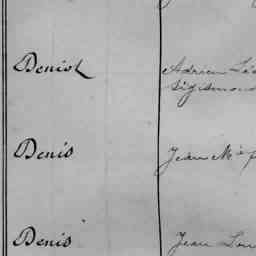 Deniol Adrien Léo
Sigismond
Denis Jean M
Denis Jean Lou